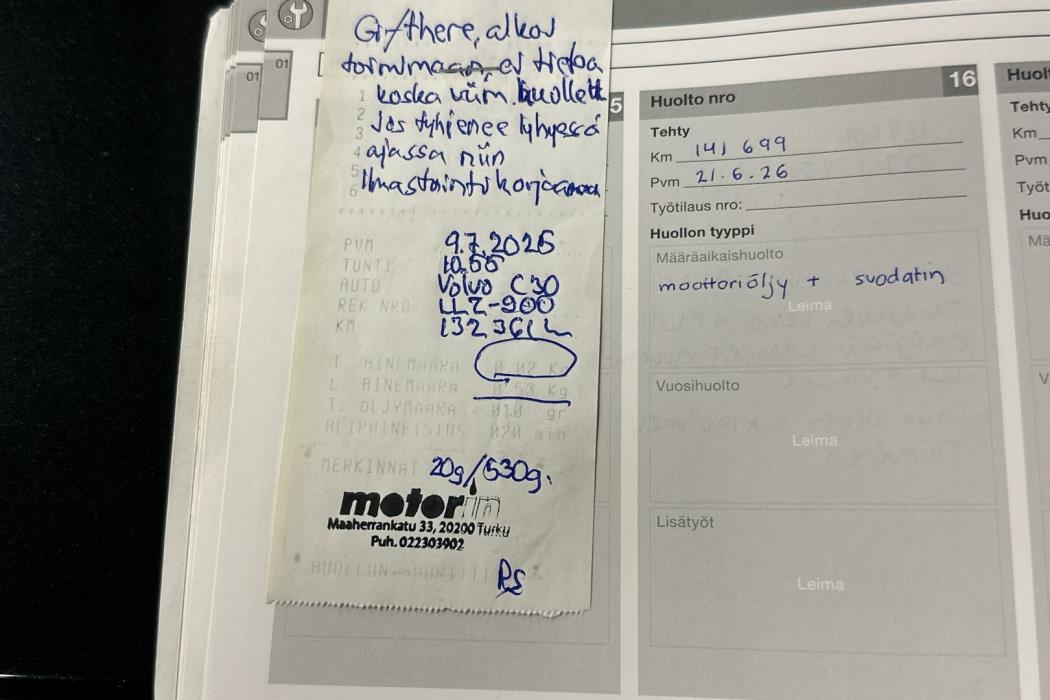 01
01
Gi/there, alkoi
toimimaan, ei tietoa
1 koska viim. huollett
2
3 Jos tyhjenee lyhyessä
4 ajassa niin
5
6 Ilmastointikorjaamo
PVM 9.7.2025
TUNTI 10.55
AUTO Volvo C30
REK NRO LLZ-900
KM 132361
T. AINEMAARA 0.02 Kg
L. AINEMAARA 0.53 Kg
T. OLJYMAARA 010 gr
ALIPAINEISTUS 020 min
MERKINNAT 20g/530g.
motorim
Maaherrankatu 33, 20200 Turku
Puh. 022303902
HUOLLON SUORITTI
RS
5
Huolto nro 16
Tehty
Km 141 699
Pvm 21.6.26
Työtilaus nro:
Huollon tyyppi
Määräaikaishuolto
moottoriöljy + suodatin
Leima
Vuosihuolto
Leima
Lisätyöt
Leima
Huol
Tehty
Km
Pvm
Työt
Huo
Mä
V